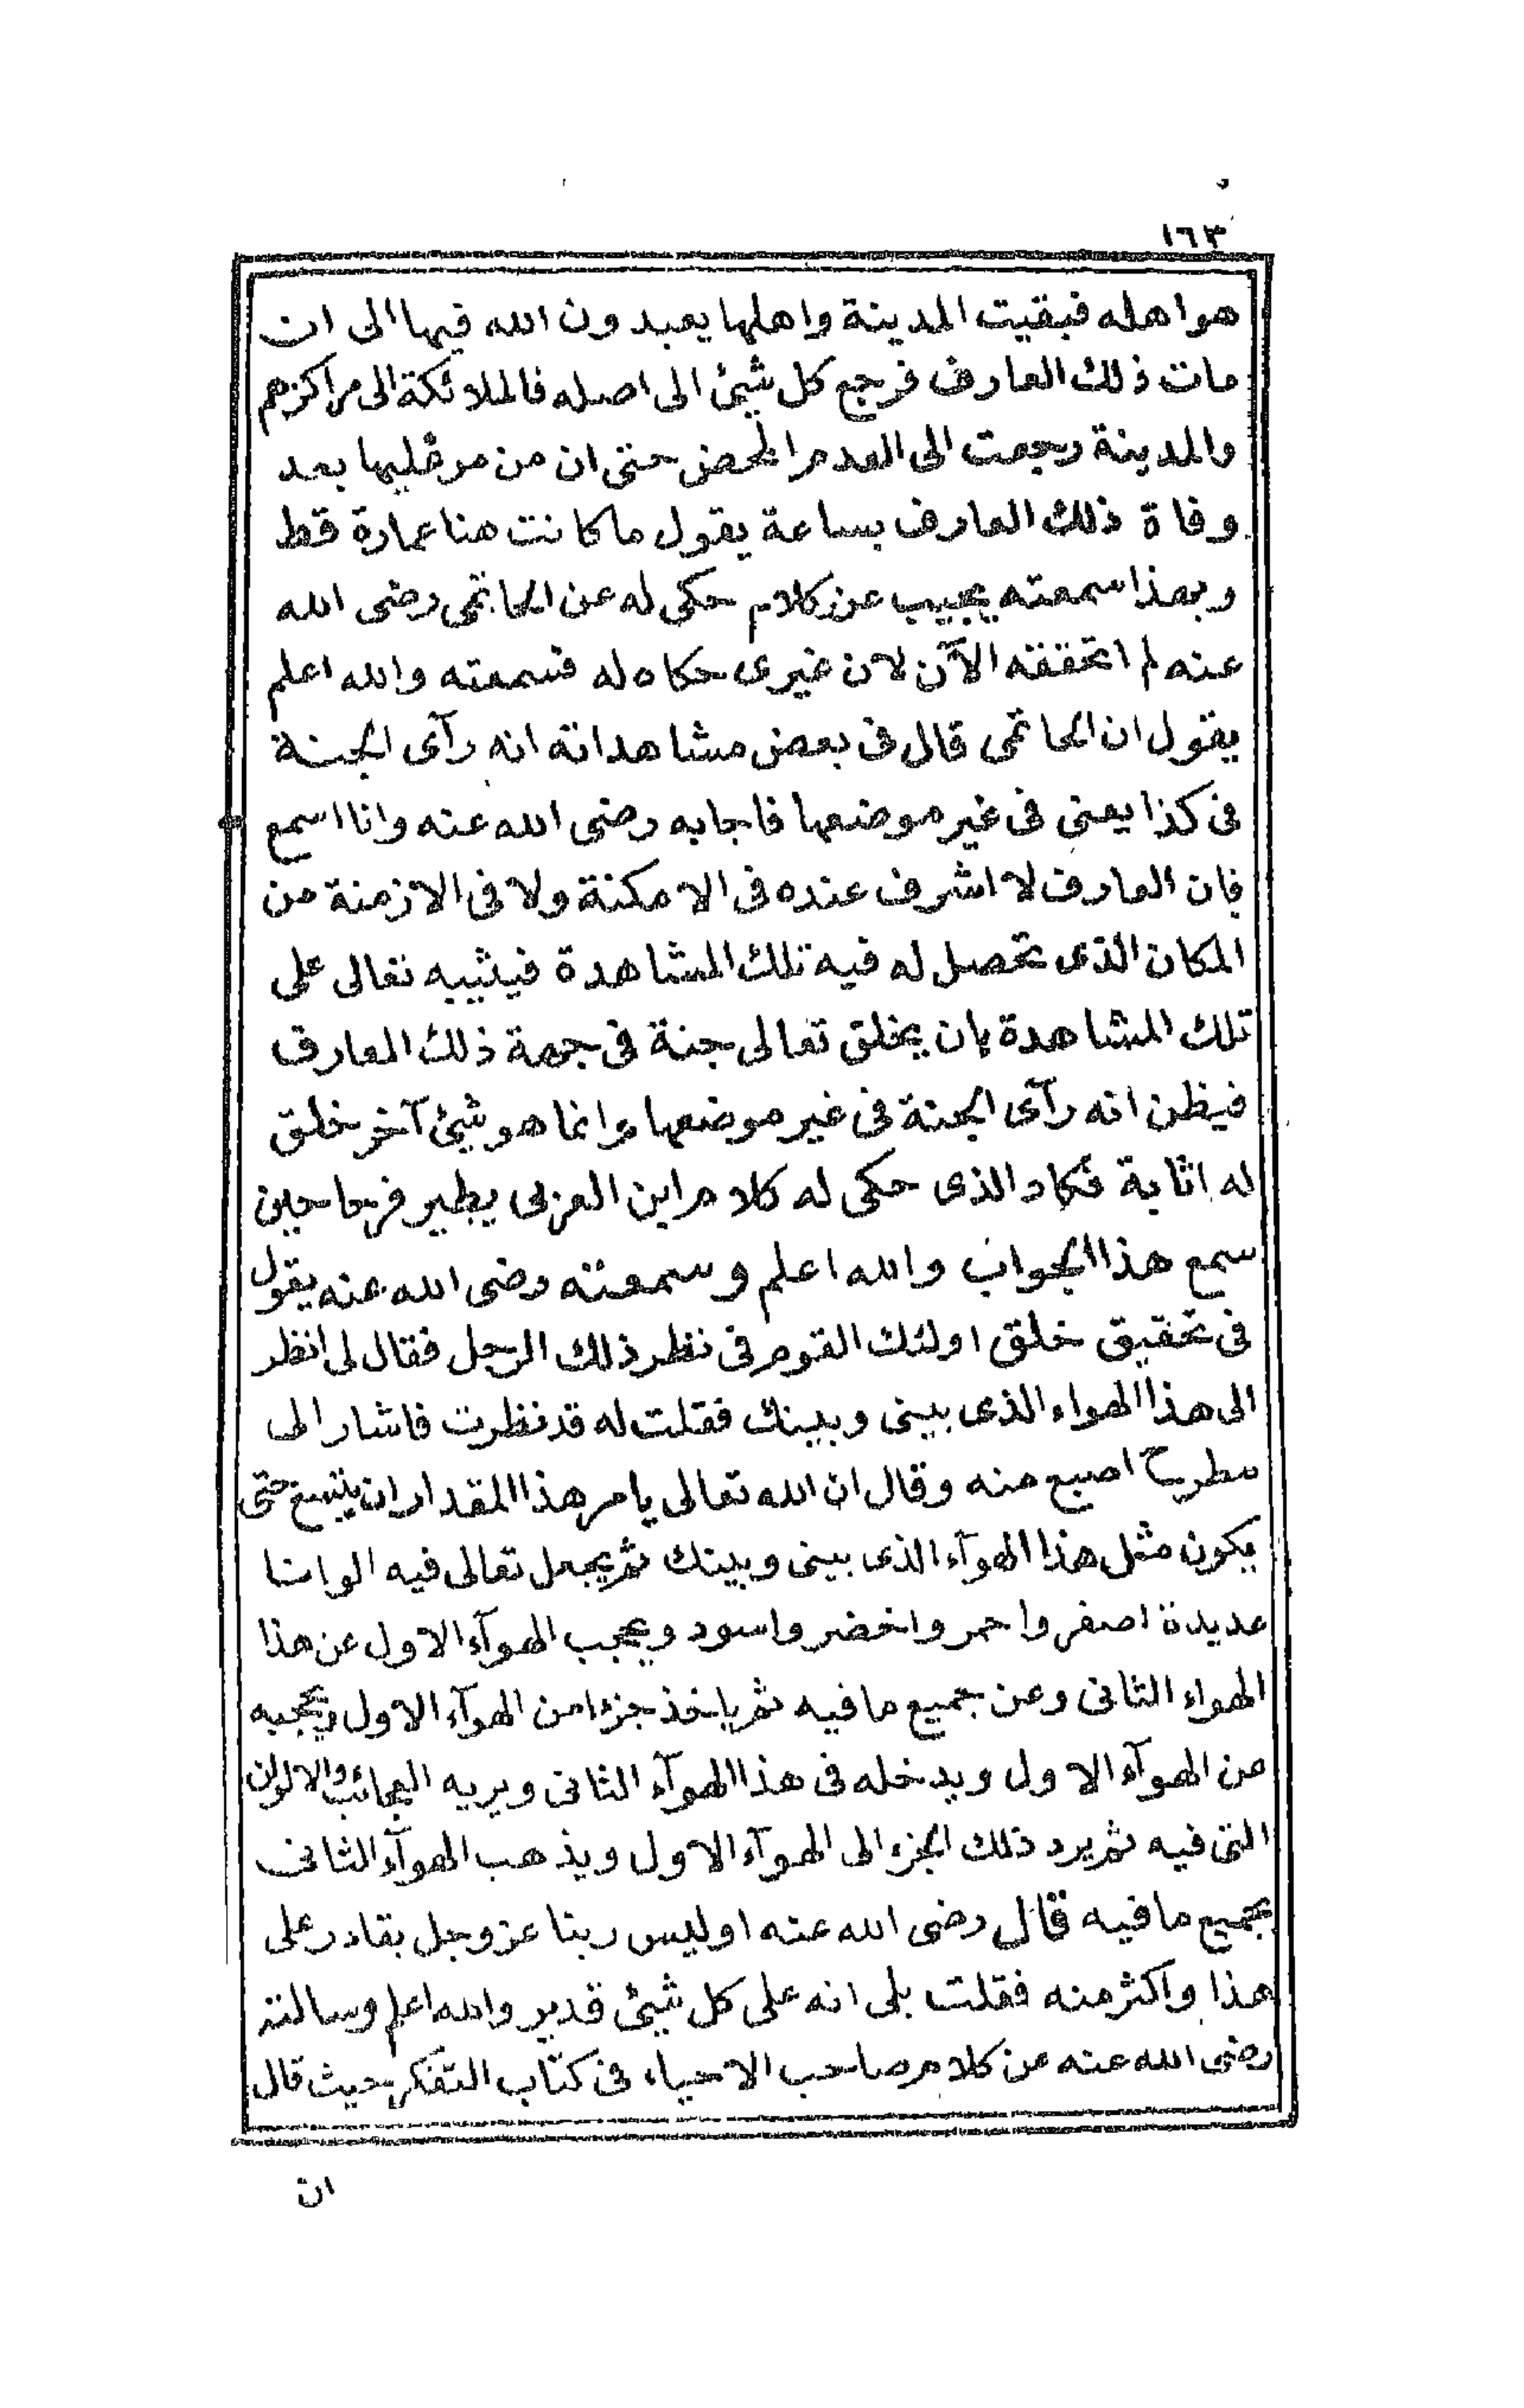 ١٦٣
هو اهله فبقيت المدينة واهلها يعبدون الله فيها الى ان
مات ذلك العارف فرجع كل شيئ الى اصله فالملائكة الى مراكزهم
والمدينة رجعت الى العدم المحض حتى ان من مر عليها بعد
وفاة ذلك العارف بساعة يقول ما كانت هنا عمارة قط
وبهذا سمعته يجيب عن كلام حكى له عن الحاتمى رضى الله
عنه لم اتحققه الآن لان غيرى حكاه له فسمعته والله اعلم
يقول ان الحاتمى قال فى بعض مشاهداته انه رآى الجنة
فى كذا يعنى فى غير موضعها فاجابه رضى الله عنه وانا اسمع
فان العارف لا اشرف عنده فى الامكنة ولا فى الازمنة من
المكان الذى تحصل له فيه تلك المشاهدة فيثيبه تعالى على
تلك المشاهدة بان يخلق تعالى جنة فى جهة ذلك العارف
فيظن انه رآى الجنة فى غير موضعها وانما هو شيئ آخر خلق
له اثابة فكاد الذى حكى له كلام ابن العربى يطير فرحا حين
سمع هذا الجواب والله اعلم وسمعته رضى الله عنه يقول
فى تحقيق خلق اولئك القوم فى نظر ذلك الرجل فقال لى انظر
الى هذا الهواء الذى بينى وبينك فقلت له قد نظرت فاشار الى
مطرح اصبع منه وقال ان الله تعالى يامر هذا المقدار ان يتسع حتى
يكون مثل هذا الهوآء الذى بينى وبينك ثم يجعل تعالى فيه الوانا
عديدة اصفر واحمر واخضر واسود ويحجب الهوآء الاول عن هذا
الهواء الثانى وعن جميع ما فيه ثم ياخذ جزءا من الهوآء الاول ويحجبه
من الهوآء الاول ويدخله فى هذا الهوآء الثانى ويريه العجائب والالوان
التى فيه ثم يرد ذلك الجزء الى الهوآء الاول ويذهب الهوآء الثانى
بجميع ما فيه قال رضى الله عنه اوليس ربنا عز وجل بقادر على
هذا واكثر منه فقلت بلى انه على كل شيئ قدير والله اعلم وسالته
رضى الله عنه عن كلام صاحب الاحياء فى كتاب التفكر حيث قال
ان